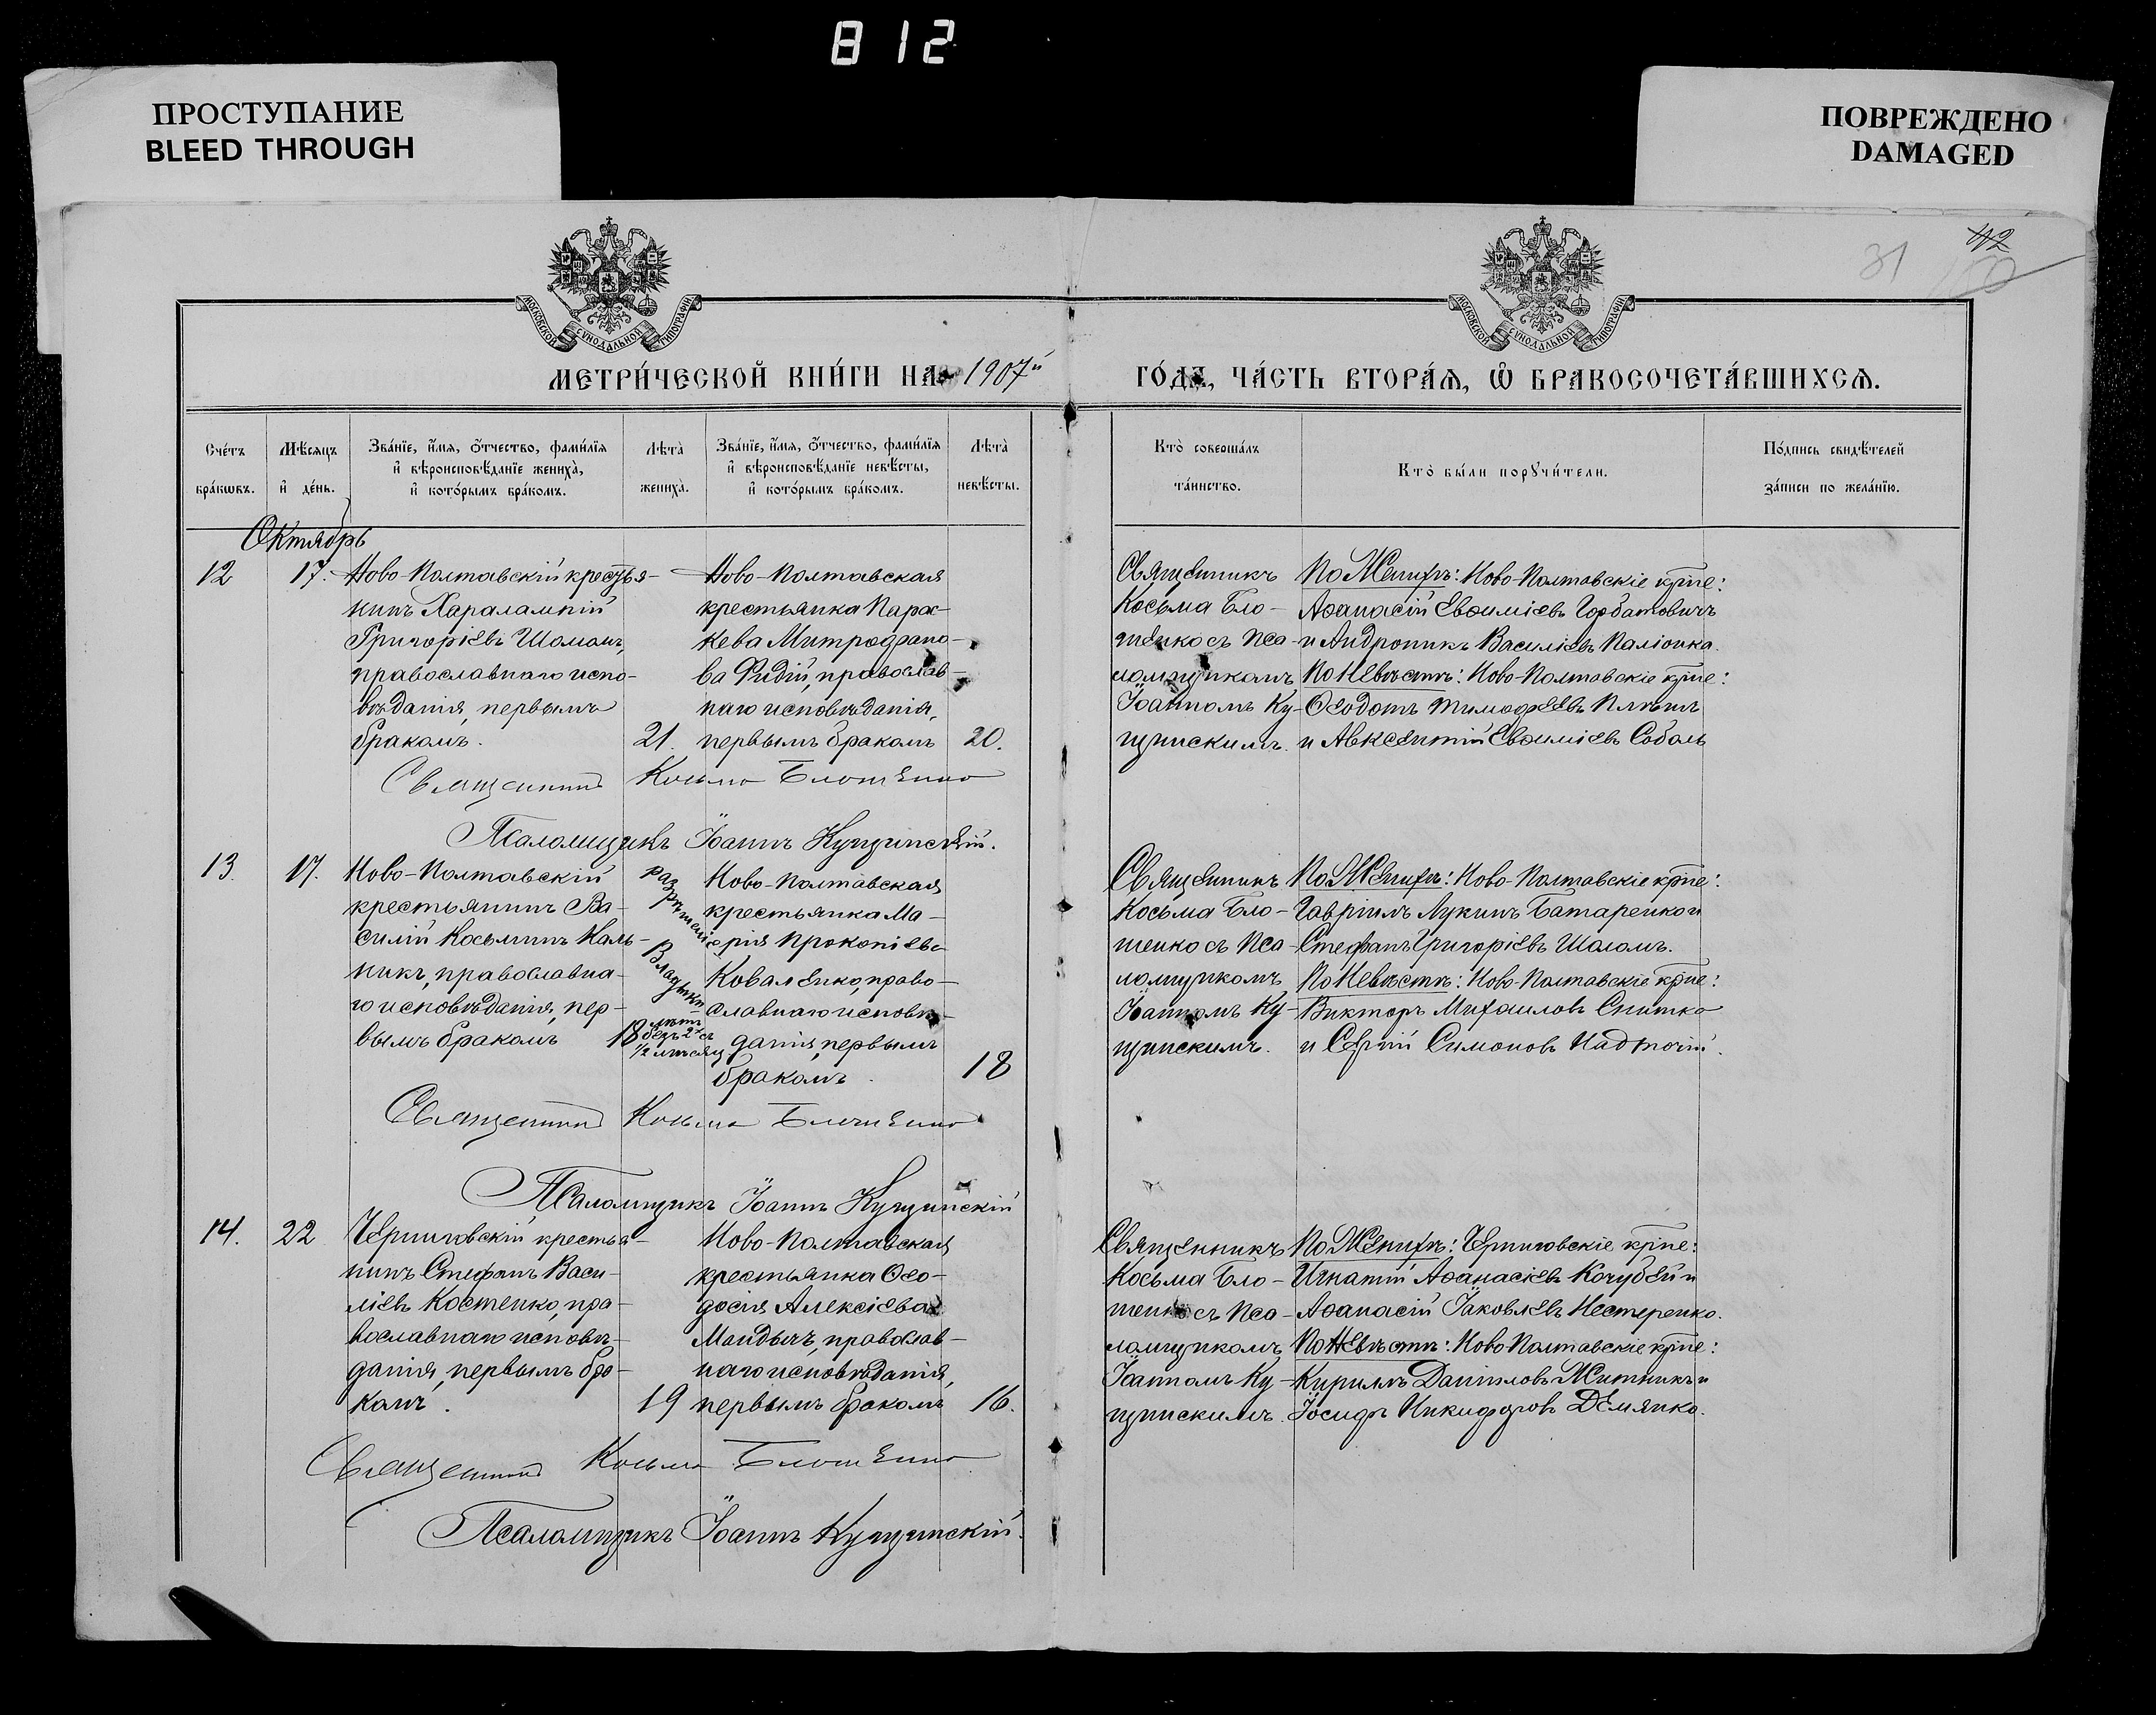 812
ПРОСТУПАНИЕ
BLEED THROUGH
ПОВРЕЖДЕНО
DAMAGED
42
31
МОСКОВСКОЙ СѴНОДАЛЬНОЙ ТИПОГРАФІИ
МОСКОВСКОЙ СѴНОДАЛЬНОЙ ТИПОГРАФІИ
МЕТРИ́ЧЕСКОЙ КНИ́ГИ НА 1907й
ГО́ДА, ЧА́СТЬ ВТОРА́Я, Ѡ҆ БРАКОСОЧЕТА́ВШИХСЯ.
Сче́тъ бра́кѡвъ.
Мѣ́сяцъ и҆ де́нь.
Зва́нїе, и҆́мя, ѻ҆́тчество, фами́лїя и҆ вѣроисповѣ́данїе жениха̀, и҆ кото́рымъ бра́комъ.
Лѣта̀ жениха̀.
Зва́нїе, и҆́мя, ѻ҆́тчество, фами́лїя и҆ вѣроисповѣ́данїе невѣ́сты, и҆ кото́рымъ бра́комъ.
Лѣта̀ невѣ́сты.
Кто̀ соверша́лъ та́инство.
Кто̀ бы́ли порꙋчи́тели.
По́дпись свидѣ́телей за́писи по жела́нїю.
Октябрь
12
17.
Ново-Полтавскій крестья-
нинъ Харалампій
Григоріевъ Шаламъ,
православнаго испо-
вѣданія, первымъ
бракомъ.
21.
Ново-Полтавская
крестьянка Парас-
кева Митрофано-
ва Ридій, православ-
наго исповѣданія,
первымъ бракомъ
20.
Священникъ
Косьма Бло-
шенко съ пса-
ломщикомъ
Іоанномъ Ку-
щинскимъ.
По Женихѣ: Ново-Полтавскіе крне:
Аѳанасій Евѳиміевъ Горбатовичъ
и Андроникъ Василіевъ Паліонка.
По Невѣстѣ: Ново-Полтавскіе крне:
Ѳеодотъ Тимофеевъ
и Авксентій Евѳиміевъ Соболь
Священникъ Косьма Блошенко
Псаломщикъ Іоаннъ Кущинскій.
13.
17.
Ново-Полтавскій
крестьянинъ Ва-
силій Косьминъ Каль-
никъ, православна-
го исповѣданія, пер-
вымъ бракомъ
разрѣшеніе
Владыки
18 лѣтъ
безъ 2хъ съ
1/2 мѣсяц
Ново-Полтавская
крестьянка Ма-
рія Прокопіева
Коваленко, право-
славнаго исповѣ-
данія, первымъ
бракомъ.
18
Священникъ
Косьма Бло-
шенко съ пса-
ломщикомъ
Іоанномъ Ку-
щинскимъ.
По Женихѣ: Ново-Полтавскіе крне:
Гавріилъ Лукинъ Батаренко и
Стефанъ Григоріевъ Шаламъ.
По Невѣстѣ: Ново-Полтавскіе крне:
Викторъ Михаиловъ Снитко
и Сергій Симоновъ Надточій.
Священникъ Косьма Блошенко
Псаломщикъ Іоаннъ Кущинскій
14.
22
Черниговскій крестья-
нинъ Стефанъ Васи-
ліевъ Костенко, пра-
вославнаго исповѣ-
данія, первымъ бра-
комъ.
19
Ново-Полтавская
крестьянка Ѳео-
досія Алексіева
Мандычъ, православ-
наго исповѣданія,
первымъ бракомъ
16.
Священникъ
Косьма Бло-
шенко съ пса-
ломщикомъ
Іоанномъ Ку-
щинскимъ.
По Женихѣ: Черниговскіе крне:
Игнатій Аѳанасіевъ Кочубей и
Аѳанасій Іаковлевъ Нестеренко.
По Невѣстѣ: Ново-Полтавскіе крне:
Кириллъ Даниловъ Житникъ и
Іосифъ Никифоровъ Демянко.
Священникъ Косьма Блошенко
Псаломщикъ Іоаннъ Кущинскій.